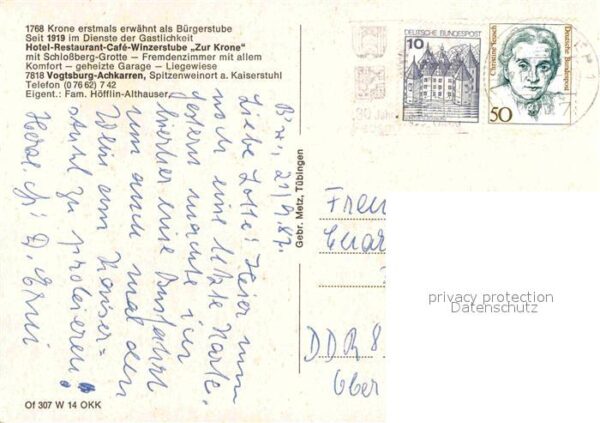 1768 Krone erstmals erwähnt als Bürgerstube
Seit 1919 im Dienste der Gastlichkeit
Hotel-Restaurant-Café-Winzerstube „Zur Krone"
mit Schloßberg-Grotte – Fremdenzimmer mit allem
Komfort – geheizte Garage – Liegewiese
7818 Vogtsburg-Achkarren, Spitzenweinort a. Kaiserstuhl
Telefon (0 76 62) 7 42
Eigent.: Fam. Höfflin-Althauser
21.9.87.
Liebe Lotte! Hier nun
noch eine letzte Karte.
Gestern machte ich
hierher eine Busfahrt
um auch mal den
Wein am Kaiser=
stuhl zu probieren!
Herzl. D. Erni
Of 307 W 14 OKK
Gebr. Metz, Tübingen
10
DEUTSCHE BUNDESPOST
50
Deutsche Bundespost
Christine Teusch
30 Jahre
DDR 8
Ober
privacy protection
Datenschutz